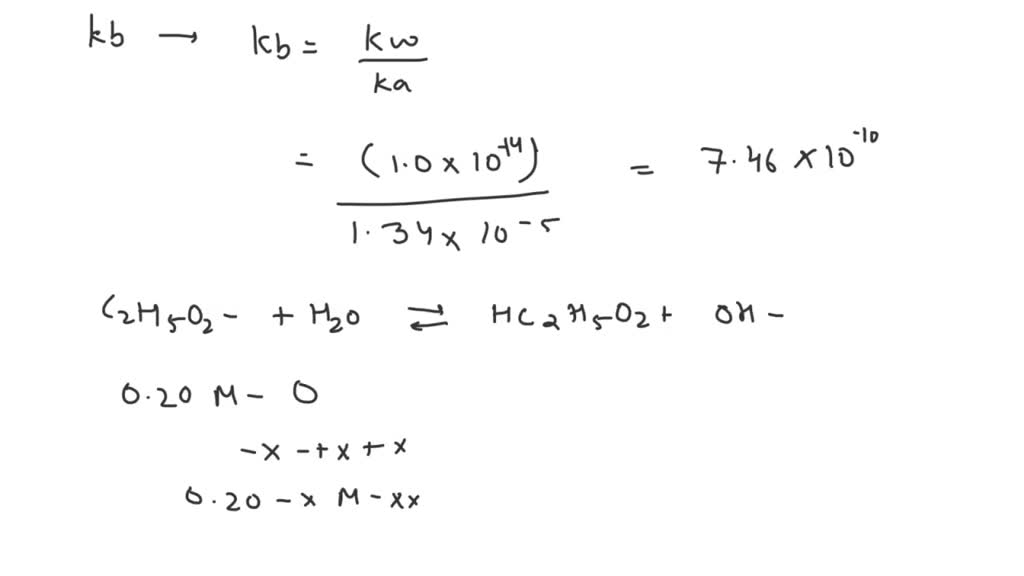 kb → kb = kw / ka
= (1.0 x 10^-14) / 1.34 x 10^-5 = 7.46 x 10^-10
C2H5O2- + H2O ⇌ HC2H5O2 + OH-
0.20 M - 0
-x - +x + x
0.20 - x M - xx